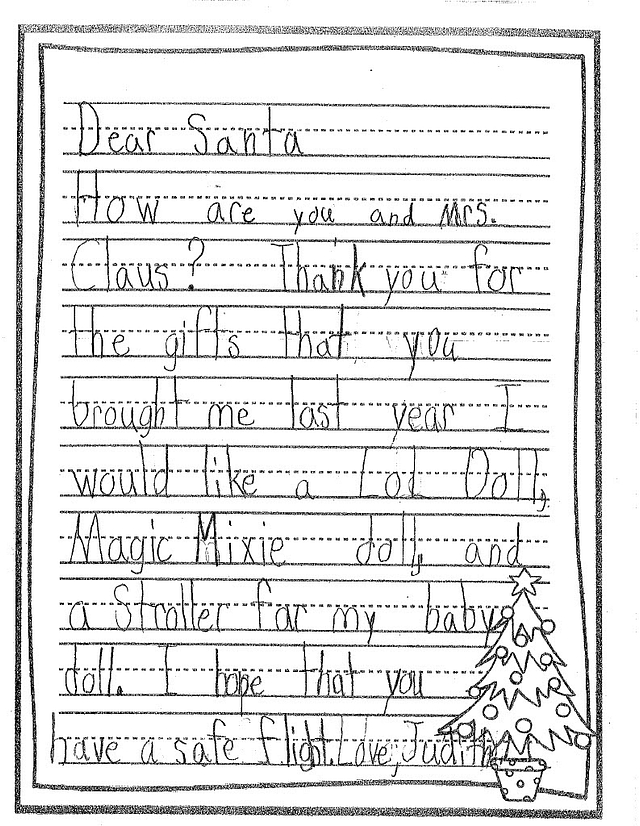 Dear Santa
How are you and Mrs.
Claus? Thank you for
the gifts that you
brought me last year I
would like a LoL Doll,
Magic Mixie doll, and
a Stroller for my babys
doll. I hope that you
have a safe flight. Love, Judith